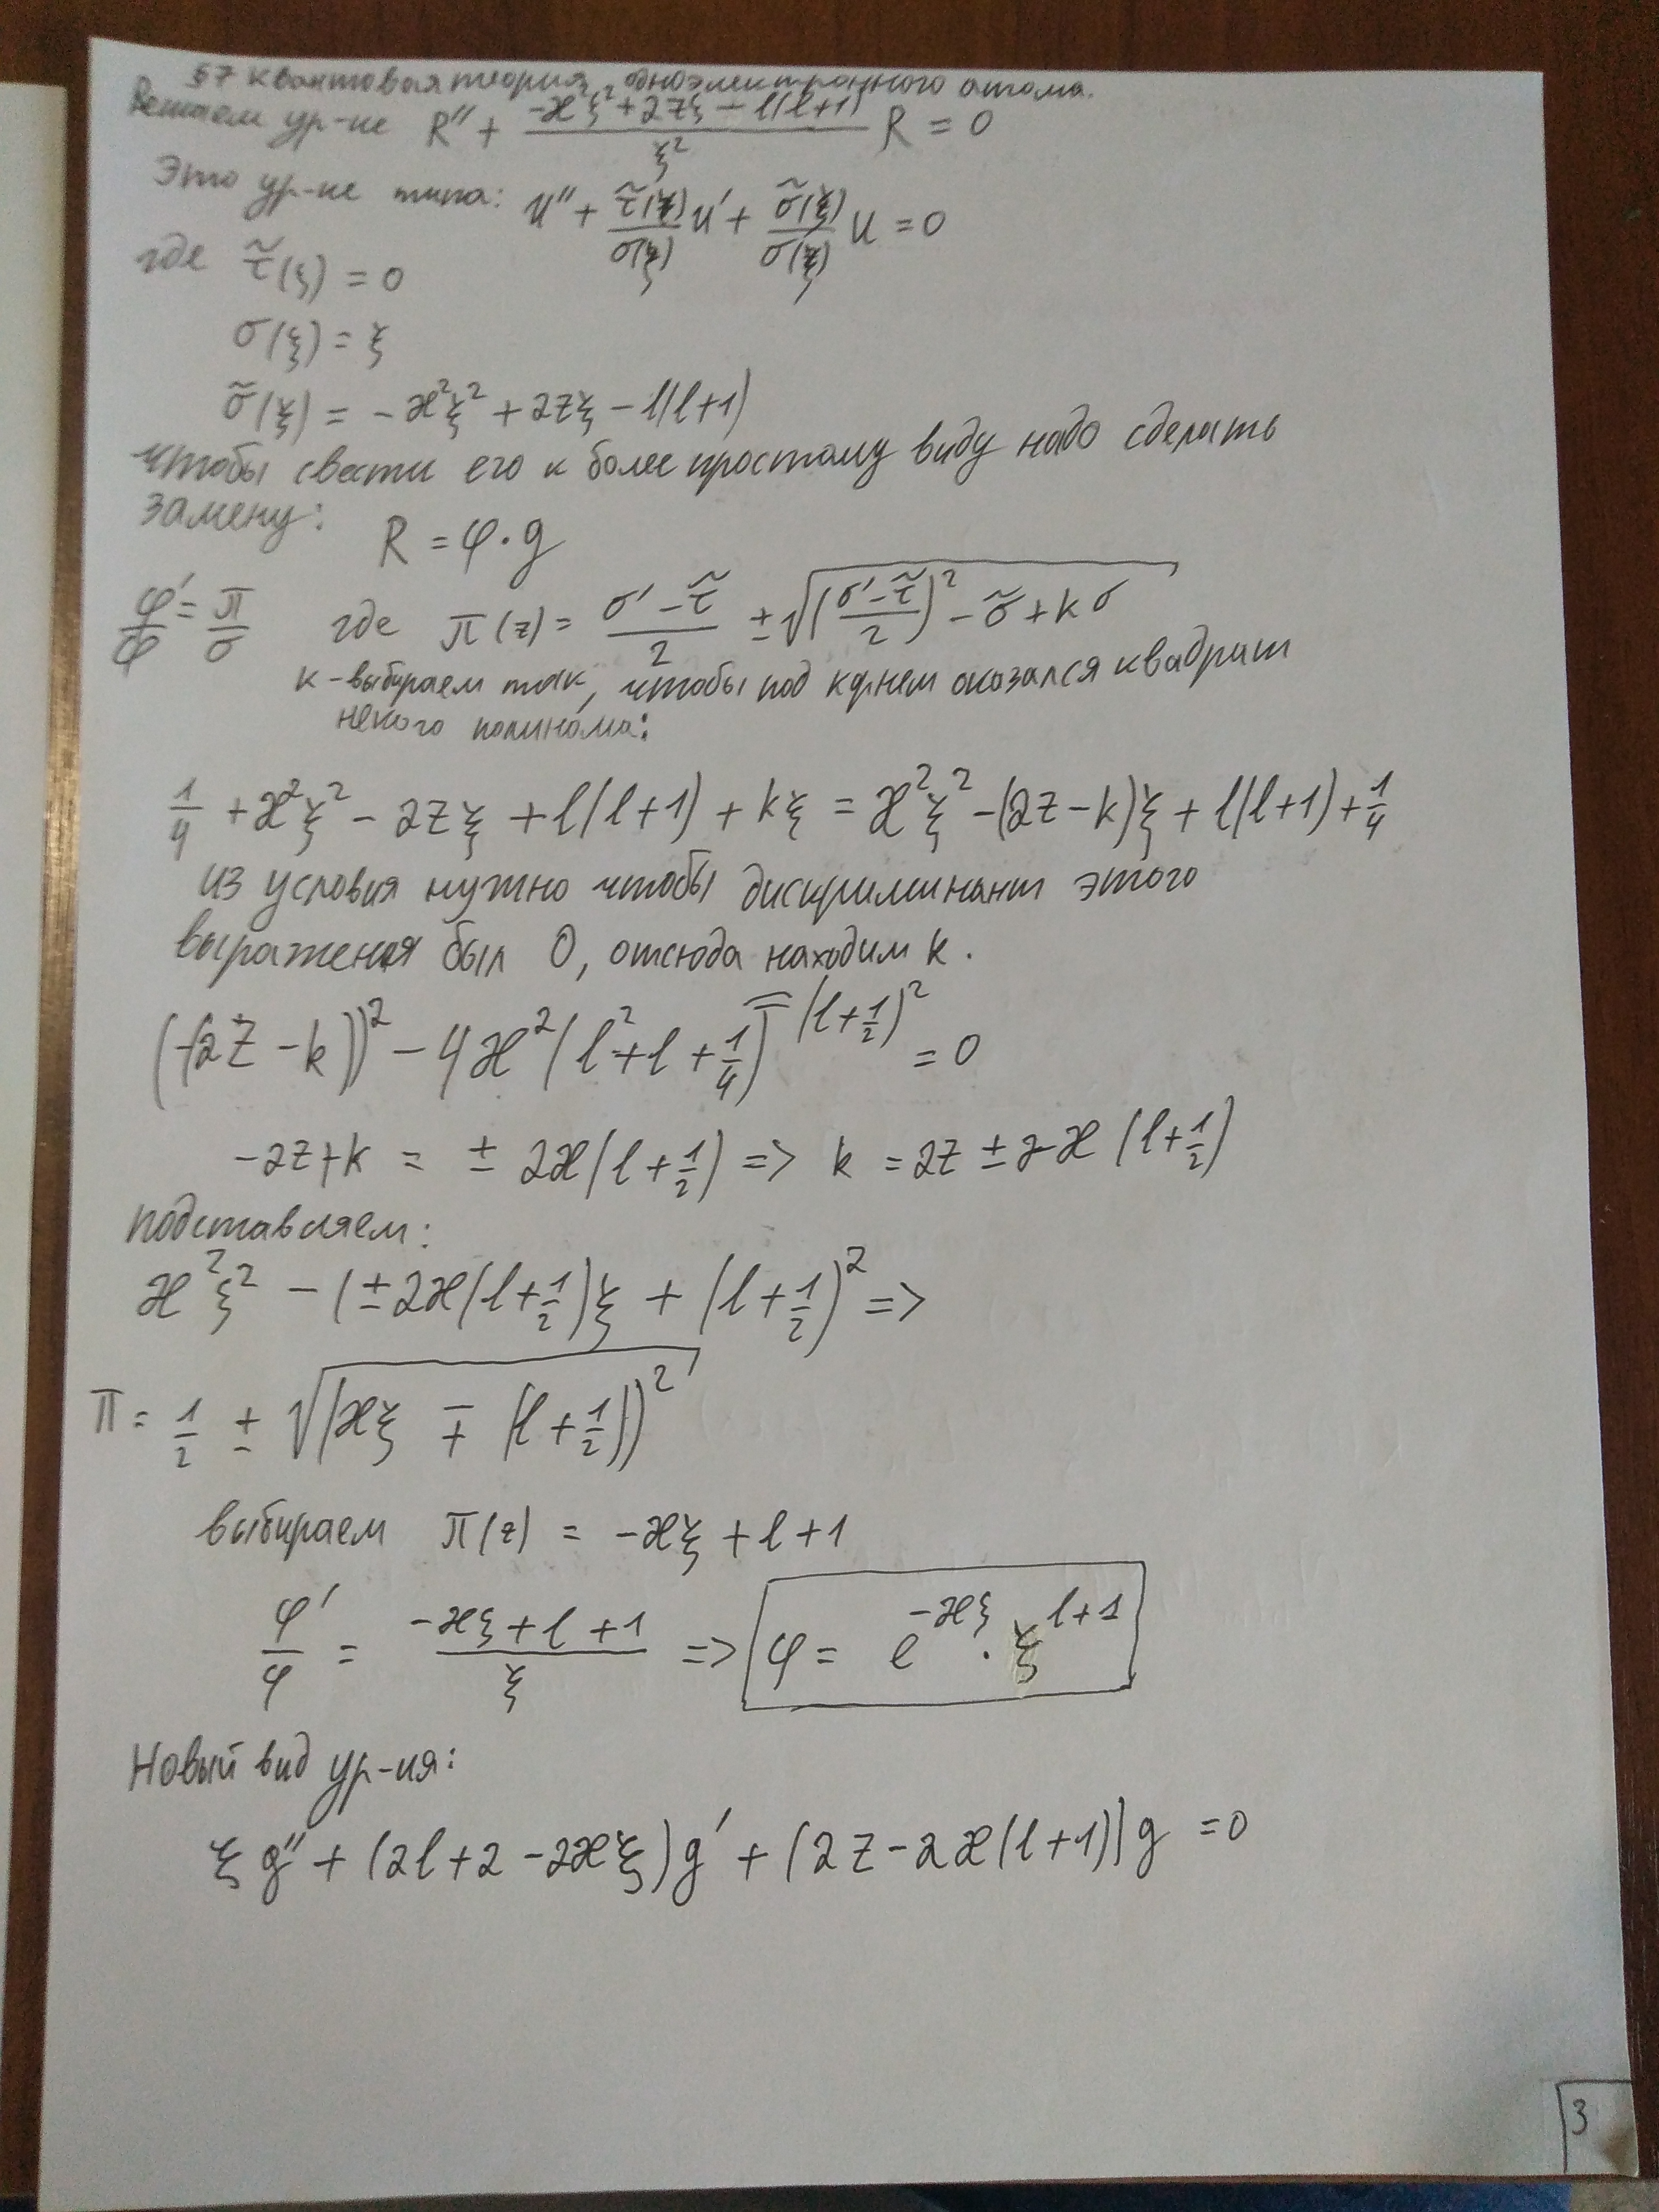 §7 квантовая теория одноэлектронного атома.
Решаем ур-ие R'' + (-ϰ²ξ² + 2zξ - l(l+1))/ξ² R = 0
Это ур-ие типа: u'' + τ̃(ξ)/σ(ξ) u' + σ̃(ξ)/σ(ξ) u = 0
где τ̃(ξ) = 0
σ(ξ) = ξ
σ̃(ξ) = -ϰ²ξ² + 2zξ - l(l+1)
чтобы свести его к более простому виду надо сделать
замену: R = φ·g
φ'/φ = π/σ где π(z) = (σ' - τ̃)/2 ± √(((σ' - τ̃)/2)² - σ̃ + kσ)
k - выбираем так, чтобы под корнем оказался квадрат
некого полинома:
1/4 + ϰ²ξ² - 2zξ + l(l+1) + kξ = ϰ²ξ² - (2z - k)ξ + l(l+1) + 1/4
из условия нужно чтобы дискриминант этого
выражения был 0, отсюда находим k.
(-(2z - k))² - 4ϰ²(l² + l + 1/4) = (l + 1/2)² = 0
-2z + k = ± 2ϰ(l + 1/2) => k = 2z ± 2ϰ(l + 1/2)
подставляем:
ϰ²ξ² - (± 2ϰ(l + 1/2)ξ + (l + 1/2)² =>
π = 1/2 ± √(ϰξ ∓ (l + 1/2))²
выбираем π(z) = -ϰξ + l + 1
φ'/φ = (-ϰξ + l + 1)/ξ => φ = e^(-ϰξ) · ξ^(l+1)
Новый вид ур-ия:
ξg'' + (2l + 2 - 2ϰξ)g' + (2z - 2ϰ(l+1))g = 0
3